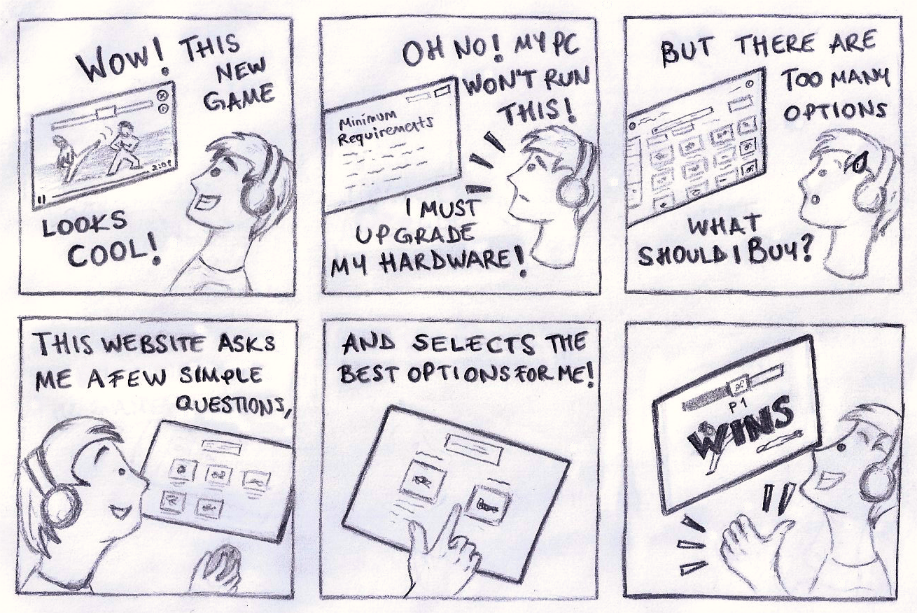 WOW! THIS
NEW
GAME
2:09
LOOKS
COOL!
OH NO! MY PC
WON'T RUN
THIS!
Minimum
Requirements
I MUST
UPGRADE
MY HARDWARE!
BUT THERE ARE
TOO MANY
OPTIONS
WHAT
SHOULD I BUY?
THIS WEBSITE ASKS
ME A FEW SIMPLE
QUESTIONS,
AND SELECTS THE
BEST OPTIONS FOR ME!
P1
WINS